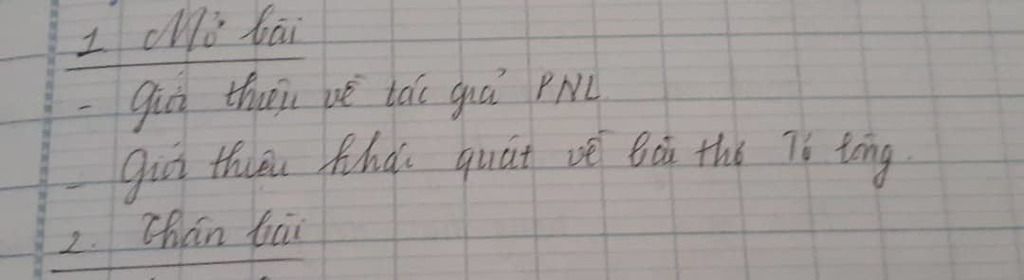 1 Mở bài
- Giới thiệu về tác giả PNL
- Giới thiệu khái quát về bài thơ Tỏ lòng.
2. Thân bài